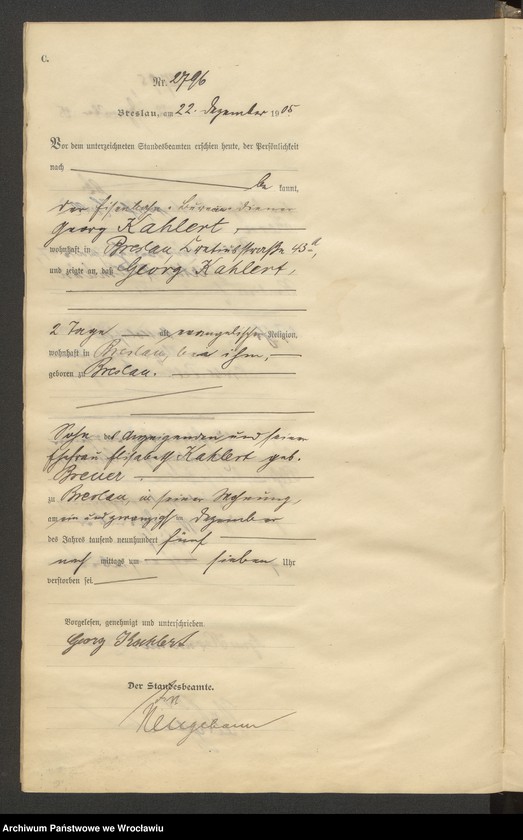 C.
Nr. 2796
Breslau, am 22. Dezember 1905
Vor dem unterzeichneten Standesbeamten erschien heute, der Persönlichkeit
nach be kannt,
der Eisenbahn-Bureaudiener
Georg Kahlert,
wohnhaft in Breslau straße 43
und zeigte an, daß Georg Kahlert,
2 Tage alt, evangelischer Religion,
wohnhaft in Breslau, bei ihm,
geboren zu Breslau.
Sohn des Anzeigenden und seiner
Ehefrau Elisabeth Kahlert geb.
Breuer
zu Breslau, in seiner Wohnung,
am ein und zwanzigsten Dezember
des Jahres tausend neunhundert fünf
nach mittags um sieben Uhr
verstorben sei.
Vorgelesen, genehmigt und unterschrieben.
Georg Kahlert
Der Standesbeamte.
Neugebauer
Archiwum Państwowe we Wrocławiu